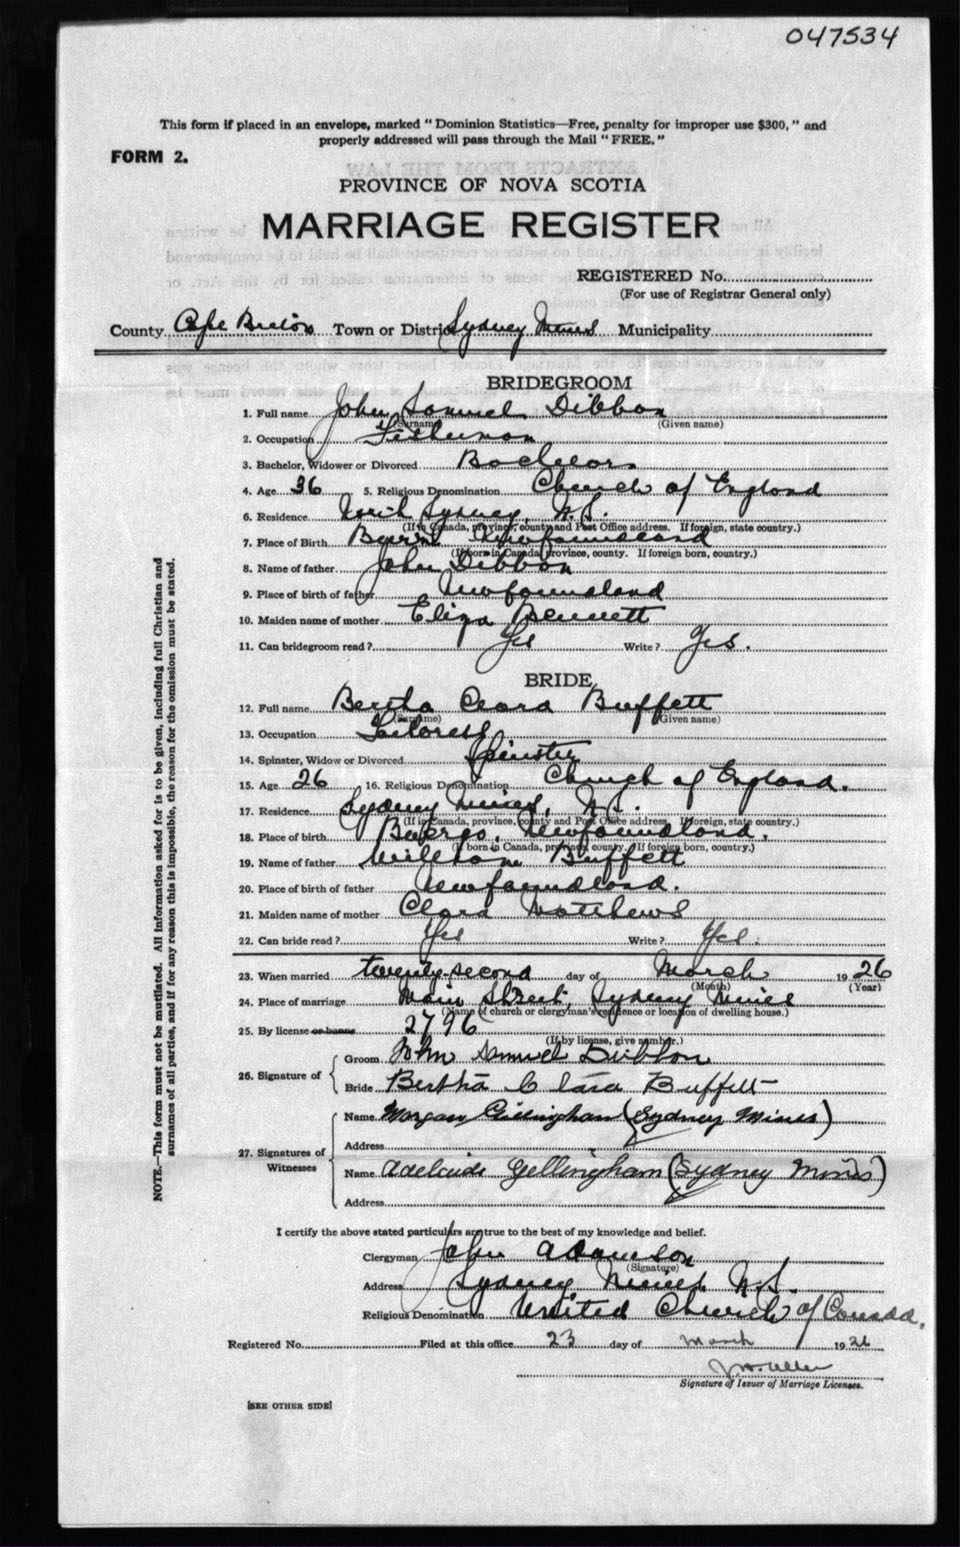 047534
This form if placed in an envelope, marked "Dominion Statistics—Free, penalty for improper use $300," and
properly addressed will pass through the Mail "FREE."
FORM 2.
PROVINCE OF NOVA SCOTIA
MARRIAGE REGISTER
REGISTERED No.
(For use of Registrar General only)
County Cape Breton Town or District Sydney Mines Municipality
BRIDEGROOM
1. Full name John Samuel Dibbon
(Surname) (Given name)
2. Occupation Fisherman
3. Bachelor, Widower or Divorced Bachelor
4. Age 36 5. Religious Denomination Church of England
6. Residence North Sydney, N.S.
(If in Canada, province, county and Post Office address. If foreign, state country.)
7. Place of Birth Newfoundland
(If born in Canada, province, county. If foreign born, country.)
8. Name of father John Dibbon
9. Place of birth of father Newfoundland
10. Maiden name of mother Eliza Bennett
11. Can bridegroom read? Yes Write? Yes.
BRIDE
12. Full name Bertha Clara Buffett
(Surname) (Given name)
13. Occupation Tailoress
14. Spinster, Widow or Divorced Spinster
15. Age 26 16. Religious Denomination Church of England.
17. Residence Sydney Mines, N.S.
(If in Canada, province, county and Post Office address. If foreign, state country.)
18. Place of birth Burgeo, Newfoundland.
(If born in Canada, province, county. If foreign born, country.)
19. Name of father William Buffett
20. Place of birth of father Newfoundland.
21. Maiden name of mother Clara Matthews
22. Can bride read? Yes Write? Yes.
23. When married twenty-second day of March 1926
(Month) (Year)
24. Place of marriage Main Street, Sydney Mines
(Name of church or clergyman's residence or location of dwelling house.)
25. By license or banns 2796
(If by license, give number.)
26. Signature of Groom John Samuel Dibbon
Bride Bertha Clara Buffett
27. Signatures of Witnesses
Name Morgan Gillingham (Sydney Mines)
Address
Name Adelaide Gellingham (Sydney Mines)
Address
I certify the above stated particulars are true to the best of my knowledge and belief.
Clergyman John Adamson
(Signature)
Address Sydney Mines N.S.
Religious Denomination United Church of Canada.
Registered No. Filed at this office 23 day of March 1926
Signature of Issuer of Marriage Licenses.
[SEE OTHER SIDE]
NOTE.—This form must not be mutilated. All information asked for is to be given, including full Christian and
surnames of all parties, and if for any reason this is impossible, the reason for the omission must be stated.